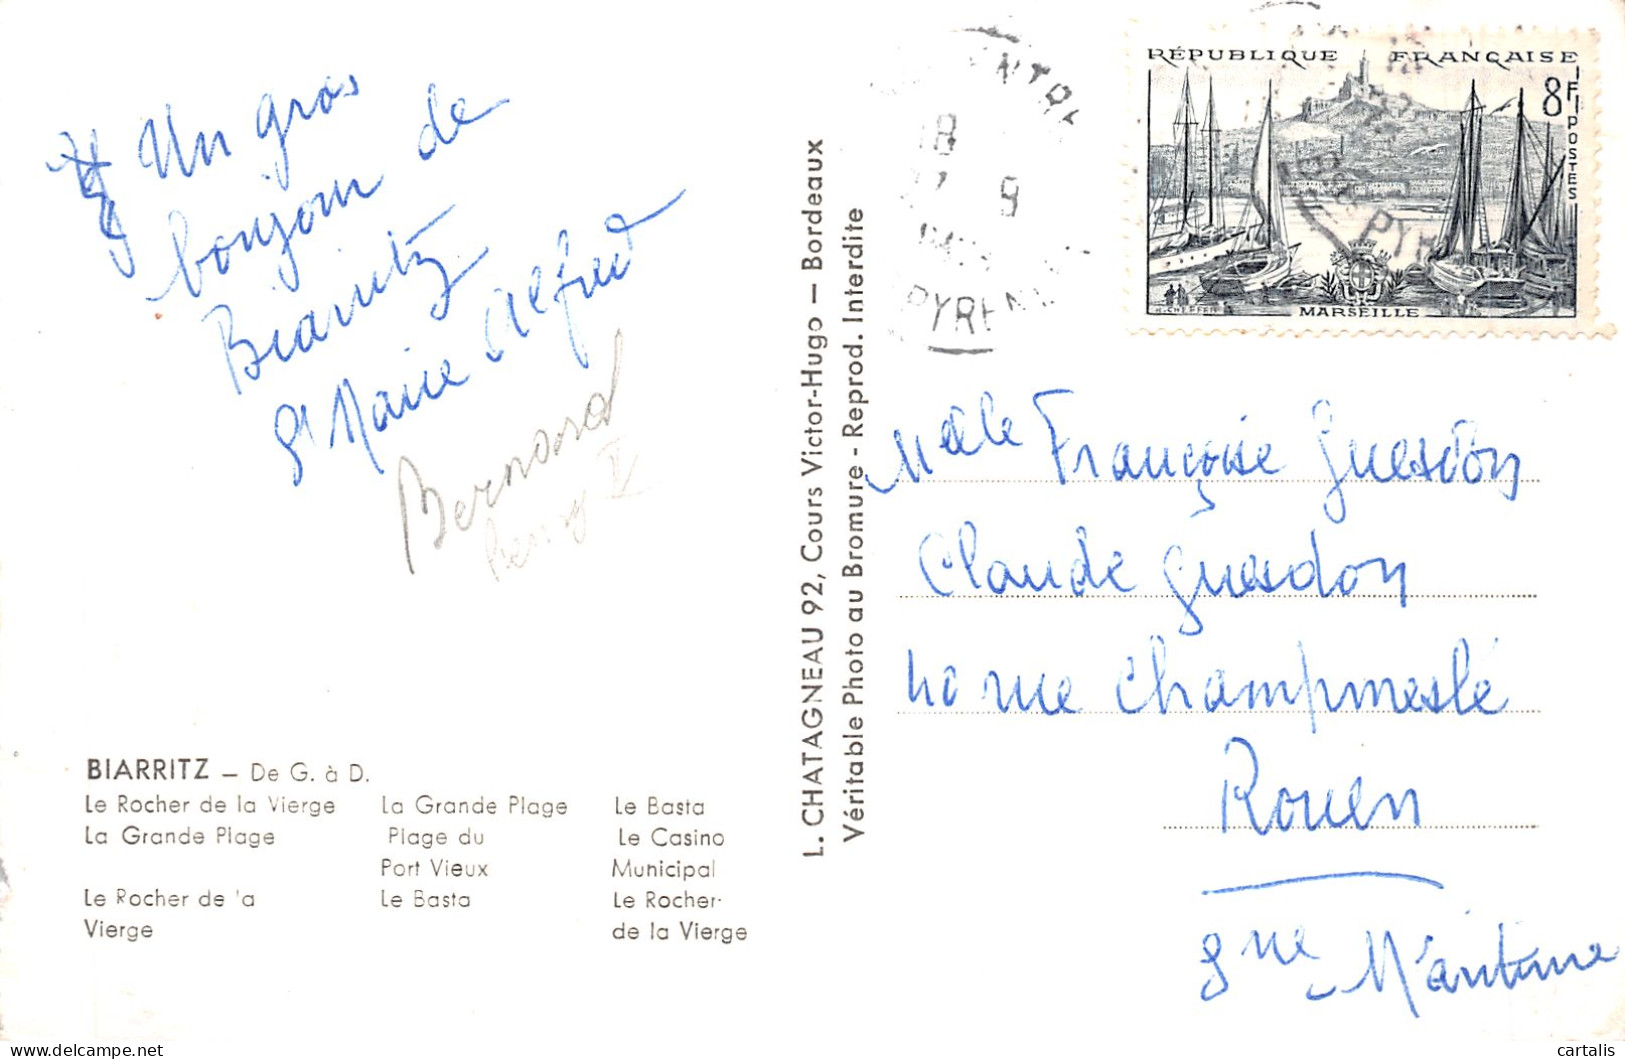 Un gros
bonjour de
Biarritz
St Marie Alfred
Bernard
BIARRITZ — De G. à D.
Le Rocher de la Vierge La Grande Plage Le Basta
La Grande Plage Plage du Le Casino
Port Vieux Municipal
Le Rocher de la Le Basta Le Rocher
Vierge de la Vierge
L. CHATAGNEAU 92, Cours Victor-Hugo — Bordeaux
Véritable Photo au Bromure - Reprod. Interdite
18
9
PYREN
RÉPUBLIQUE FRANÇAISE
8F
POSTES
MARSEILLE
PYR
Melle Françoise Guesdon
Claude Guesdon
40 rue Champmeslé
Rouen
Sne Maritime
cartalis